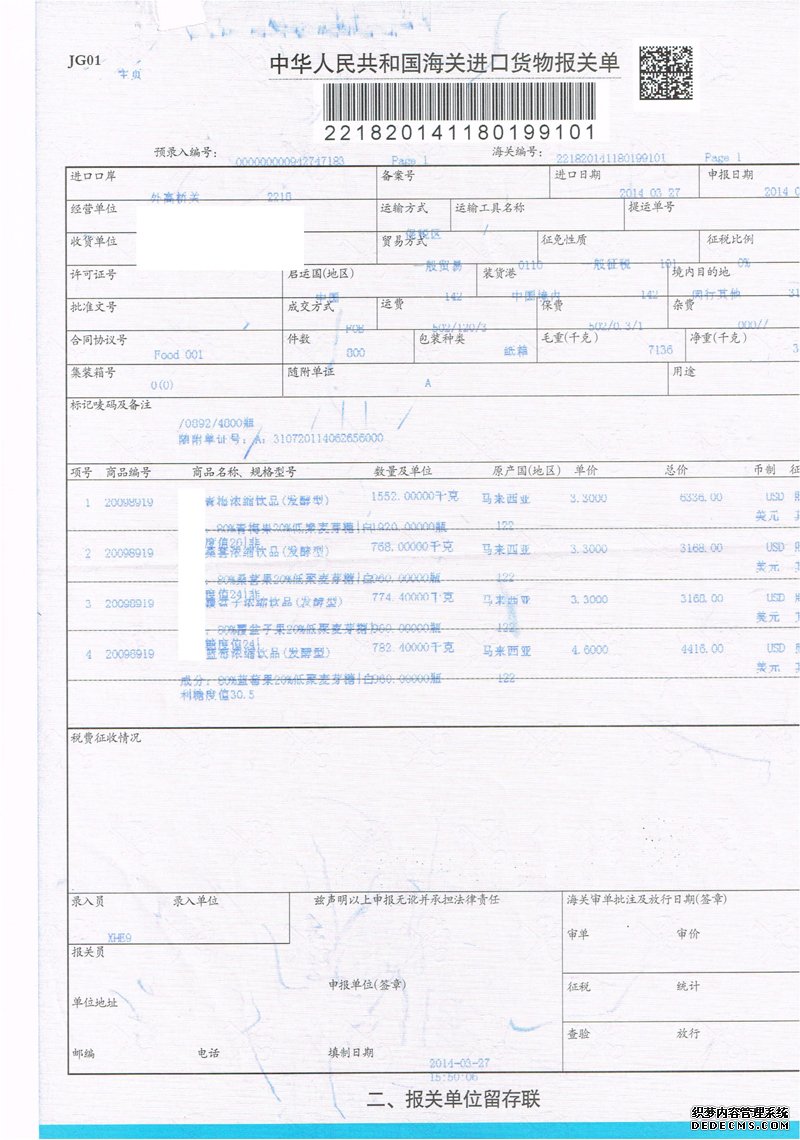 JG01
主页
中华人民共和国海关进口货物报关单
221820141180199101
预录入编号: 000000000942747183 Page 1 海关编号: 221820141180199101 Page 1
进口口岸 备案号 进口日期 申报日期
外高桥关 2218 2014-03-27 2014-0
经营单位 运输方式 运输工具名称 提运单号
保税区 /
收货单位 贸易方式 征免性质 征税比例
一般贸易 0110 一般征税 101 0%
许可证号 启运国(地区) 装货港 境内目的地
中国 142 中国境内 142 闵行其他 31
批准文号 成交方式 运费 保费 杂费
FOB 502/120/3 502/0.3/1 000//
合同协议号 件数 包装种类 毛重(千克) 净重(千克)
Food 001 800 纸箱 7136 3
集装箱号 随附单证 用途
0(0) A
标记唛码及备注
/0892/4800瓶
随附单证号: A: 310720114062656000
项号 商品编号 商品名称、规格型号 数量及单位 原产国(地区) 单价 总价 币制 征
1 20098919 青梅浓缩饮品(发酵型) 1552.00000千克 马来西亚 3.3000 6336.00 USD
美元
: 80%青梅果20%低聚麦芽糖|白1920.00000瓶 122
度值26|非
2 20098919 桑葚浓缩饮品(发酵型) 768.00000千克 马来西亚 3.3000 3168.00 USD
美元
: 80%桑葚果20%低聚麦芽糖|白960.00000瓶 122
度值24|非
3 20098919 覆盆子浓缩饮品(发酵型) 774.40000千克 马来西亚 3.3000 3168.00 USD
美元
: 80%覆盆子果20%低聚麦芽糖|960.00000瓶 122
糖度值24|
4 20098919 蓝莓浓缩饮品(发酵型) 782.40000千克 马来西亚 4.6000 4416.00 USD
美元
成分: 80%蓝莓果20%低聚麦芽糖|白960.00000瓶 122
利糖度值30.5
税费征收情况
录入员 录入单位 兹声明以上申报无讹并承担法律责任 海关审单批注及放行日期(签章)
审单 审价
报关员
申报单位(签章) 征税 统计
单位地址
查验 放行
邮编 电话 填制日期
2014-03-27
15:50:06
二、报关单位留存联
织梦内容管理系统
DEDECMS.COM